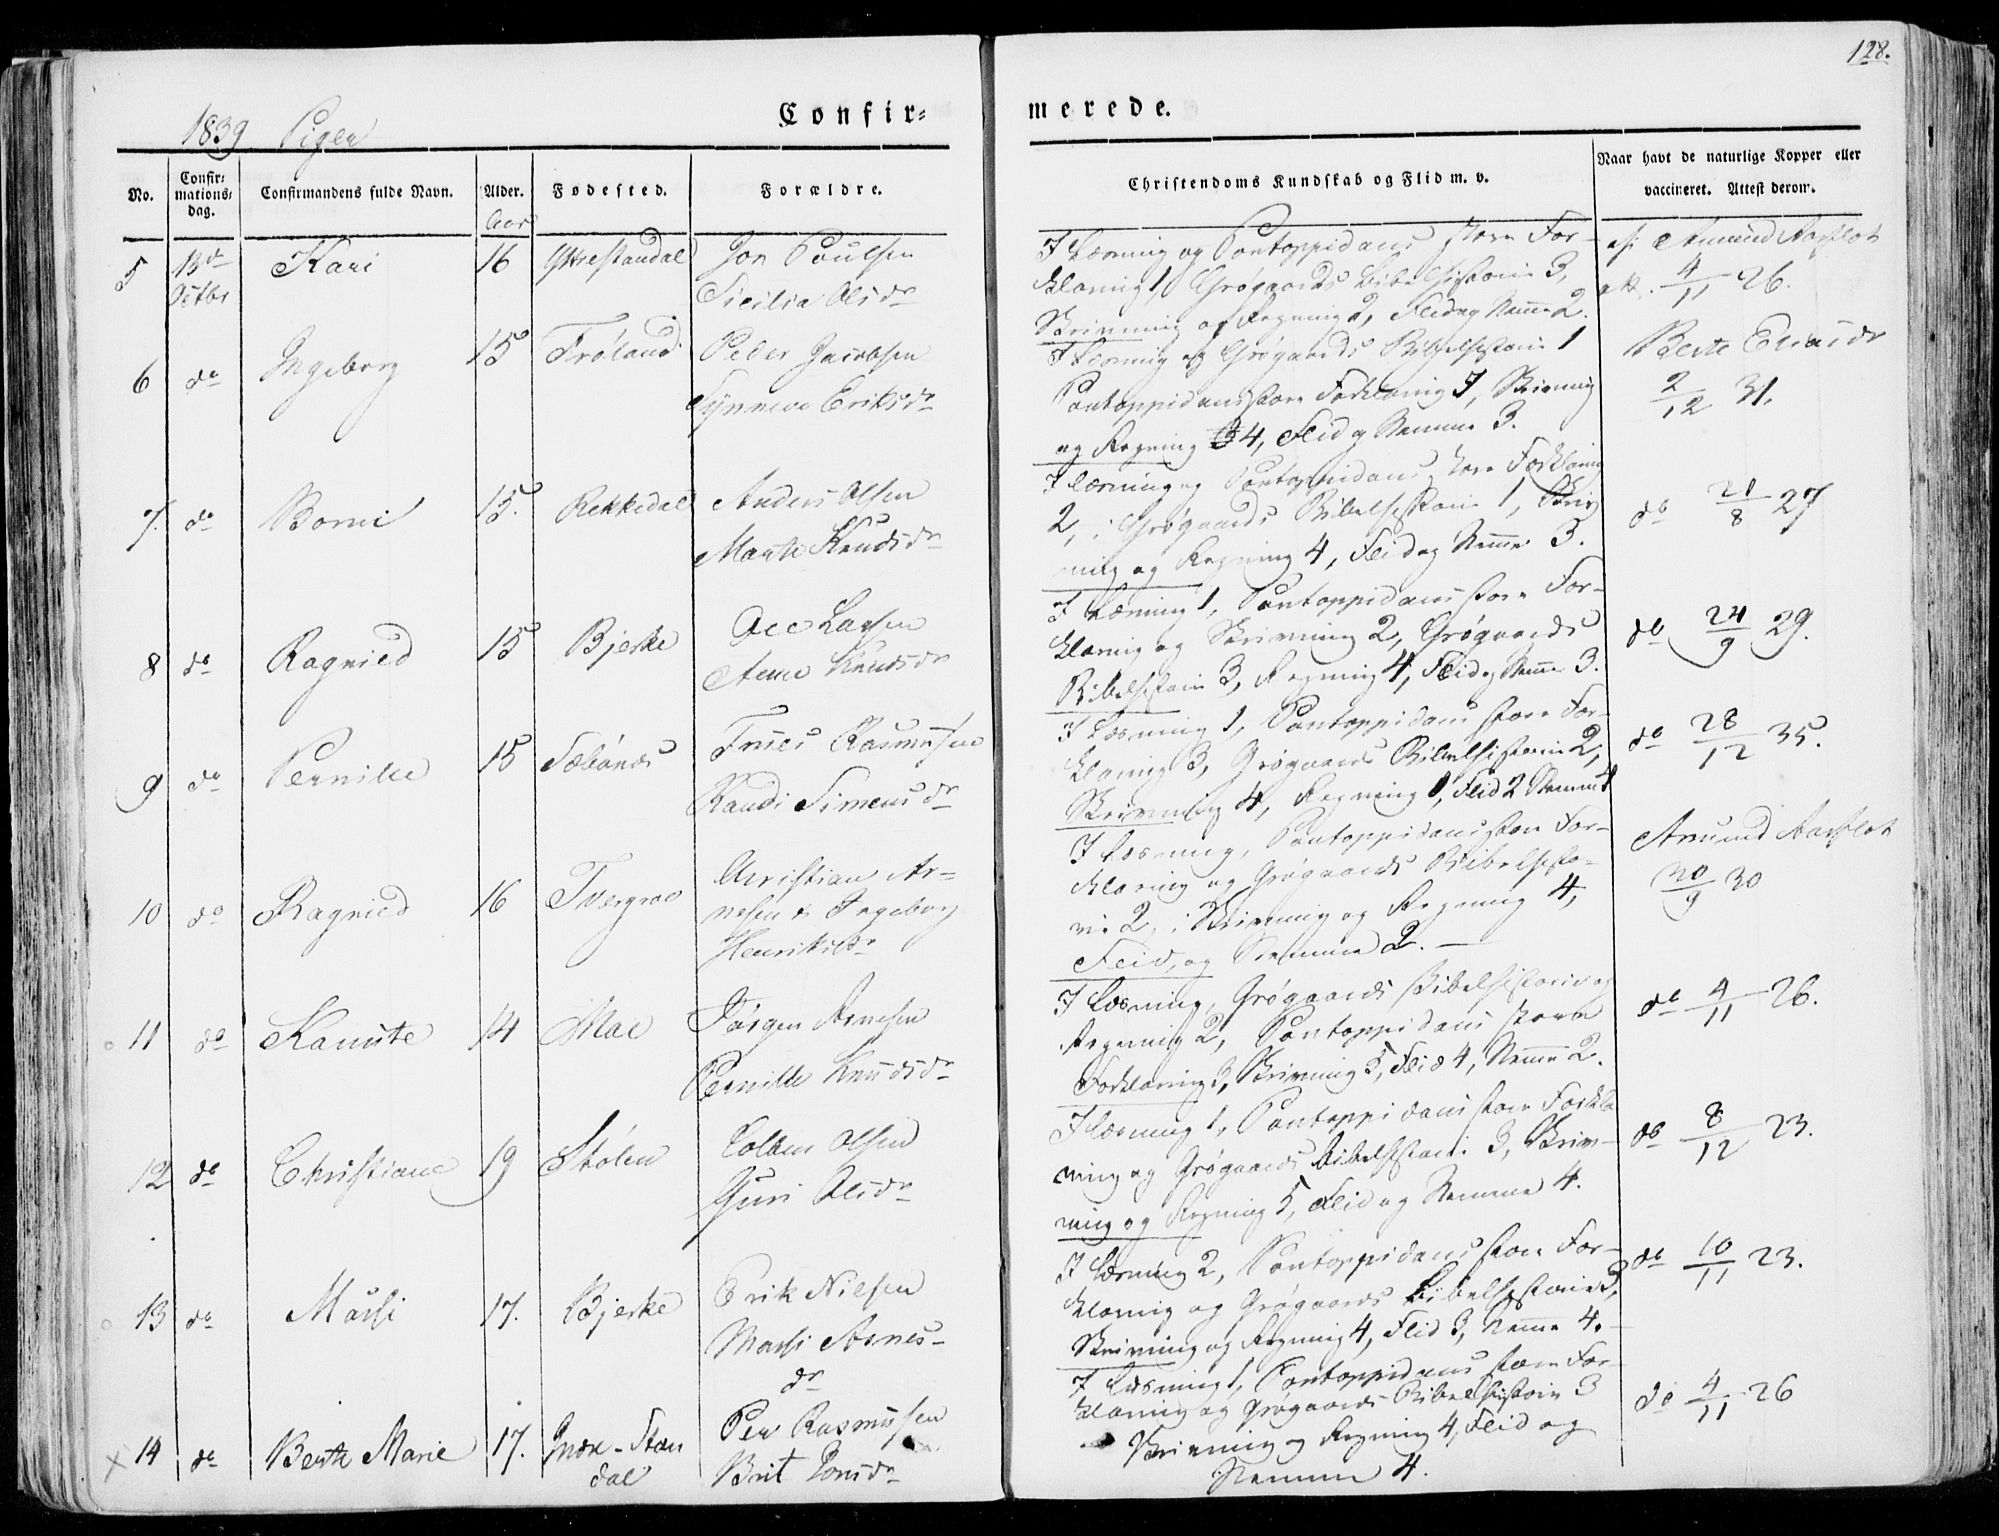 128.
1839 Piger
Confir=
merede.
No.
Confir=
mations=
dag.
Confirmandens fulde Navn.
Alder.
Fødested.
Forældre.
Christendoms Kundskab og Flid m. v.
Naar havt de naturlige Kopper eller
vaccineret. Attest derom.
Aar
5 13de Octbr Kari 16 Ytrestandal Jon Poulsen
Sicilia Olsdr
I Læsning og Pontoppidans store For-
klaring 1, Grøgaards Bibelhistorie 3,
Skrivning og Regning 2, Flid og Nemme 2.
af Amund Aarflot
att. 4/11 26.
6 do Ingeborg 15 Frøland Peder Jacobsen
Synneve Eriksdr
I Læsning og Grøgaards Bibelhistorie 1
Pontoppidans store Forklaring 1, Skrivning
og Regning 4, Flid og Nemme 3.
Berte Eliasdr
2/12 31.
7. do Borni 15. Rekkedal Anders Olsen
Marte Knudsdr
I Læsning og Pontoppidans store Forklaring
2, i Grøgaards Bibelhistorie 1, Skriv
ning og Regning 4, Flid og Nemme 3.
do 21/8 27
8 do Ragnied 15 Bjerke Ole Larsen
Anne Knudsdr
I Læsning 1, Pontoppidans store For-
klaring og Skrivning 2, Grøgaards
Bibelhistorie 3, Regning 4, Flid og Nemme 3.
do 24/9 29.
9 do Pernille 15 Sæbønes Friis Rasmusen
Randi Simensdr
I Læsning 1, Pontoppidans store For-
klaring 3, Grøgaards Bibelhistorie 2,
Skrivning 4, Regning Flid 2 Nemme 4
do 28/12 35.
10 do Ragnied 16 Tvergrov Christian Ar=
nesen & Ingeborg
Henriksdr
I Læsning, Pontoppidans store For-
klaring og Grøgaards Bibelhisto-
rie 2, i Skrivning og Regning 4,
Flid, og Nemme 2.
Amund Aarflot
20/9 30
11 do Kanute 14 Mae Jørgen Arnesen
Pernille Knudsdr
I Læsning, Grøgaards Bibelhistorie og
Regning 2, Pontoppidans store
Forklaring 3, Skrivning 5, Flid 4, Nemme 2.
do 4/11 26.
12 do Christiane 19 Stølen Colben Olsen
Guri Olsdr
I Læsning 1, Pontoppidans store Forkla
ring og Grøgaards Bibelhistorie 3, Skriv-
ning og Regning 5, Flid og Nemme 4.
do 8/12 23.
13 do Massi 17. Bjerke Erik Nilsen
Massi Arnes-
dr
I Læsning 2, Pontoppidans store For-
klaring og Grøgaards Bibelhistorie 3,
Skrivning og Regning 4, Flid 3, Nemme 4.
do 10/11 23.
x 14 do Berthe Marie 17. Indre-Stan
dal
Per Rasmussen
Brit Jonsdr
I Læsning 1, Pontoppidans store For-
klaring og Grøgaards Bibelhistorie 3
Skrivning og Regning 4, Flid og
Nemme 4.
do 4/11 26